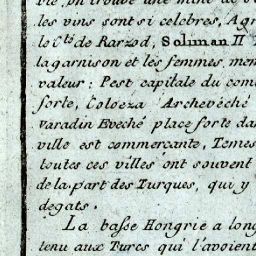 vie on trouve une mine de
les vins sont si celebres, Agr
le Cte de Barzod, Soliman II
la garnison et les femmes, mem
valeur: Pest capitale du com
forte, Coloeza Archevéché
Varadin Eveché place forte da
ville est commerçante, Temes
toutes ces villes ont souvent
de la part des Turques, qui y
degats.
La basse Hongrie a long
tenu aux Turcs qui l'avoient